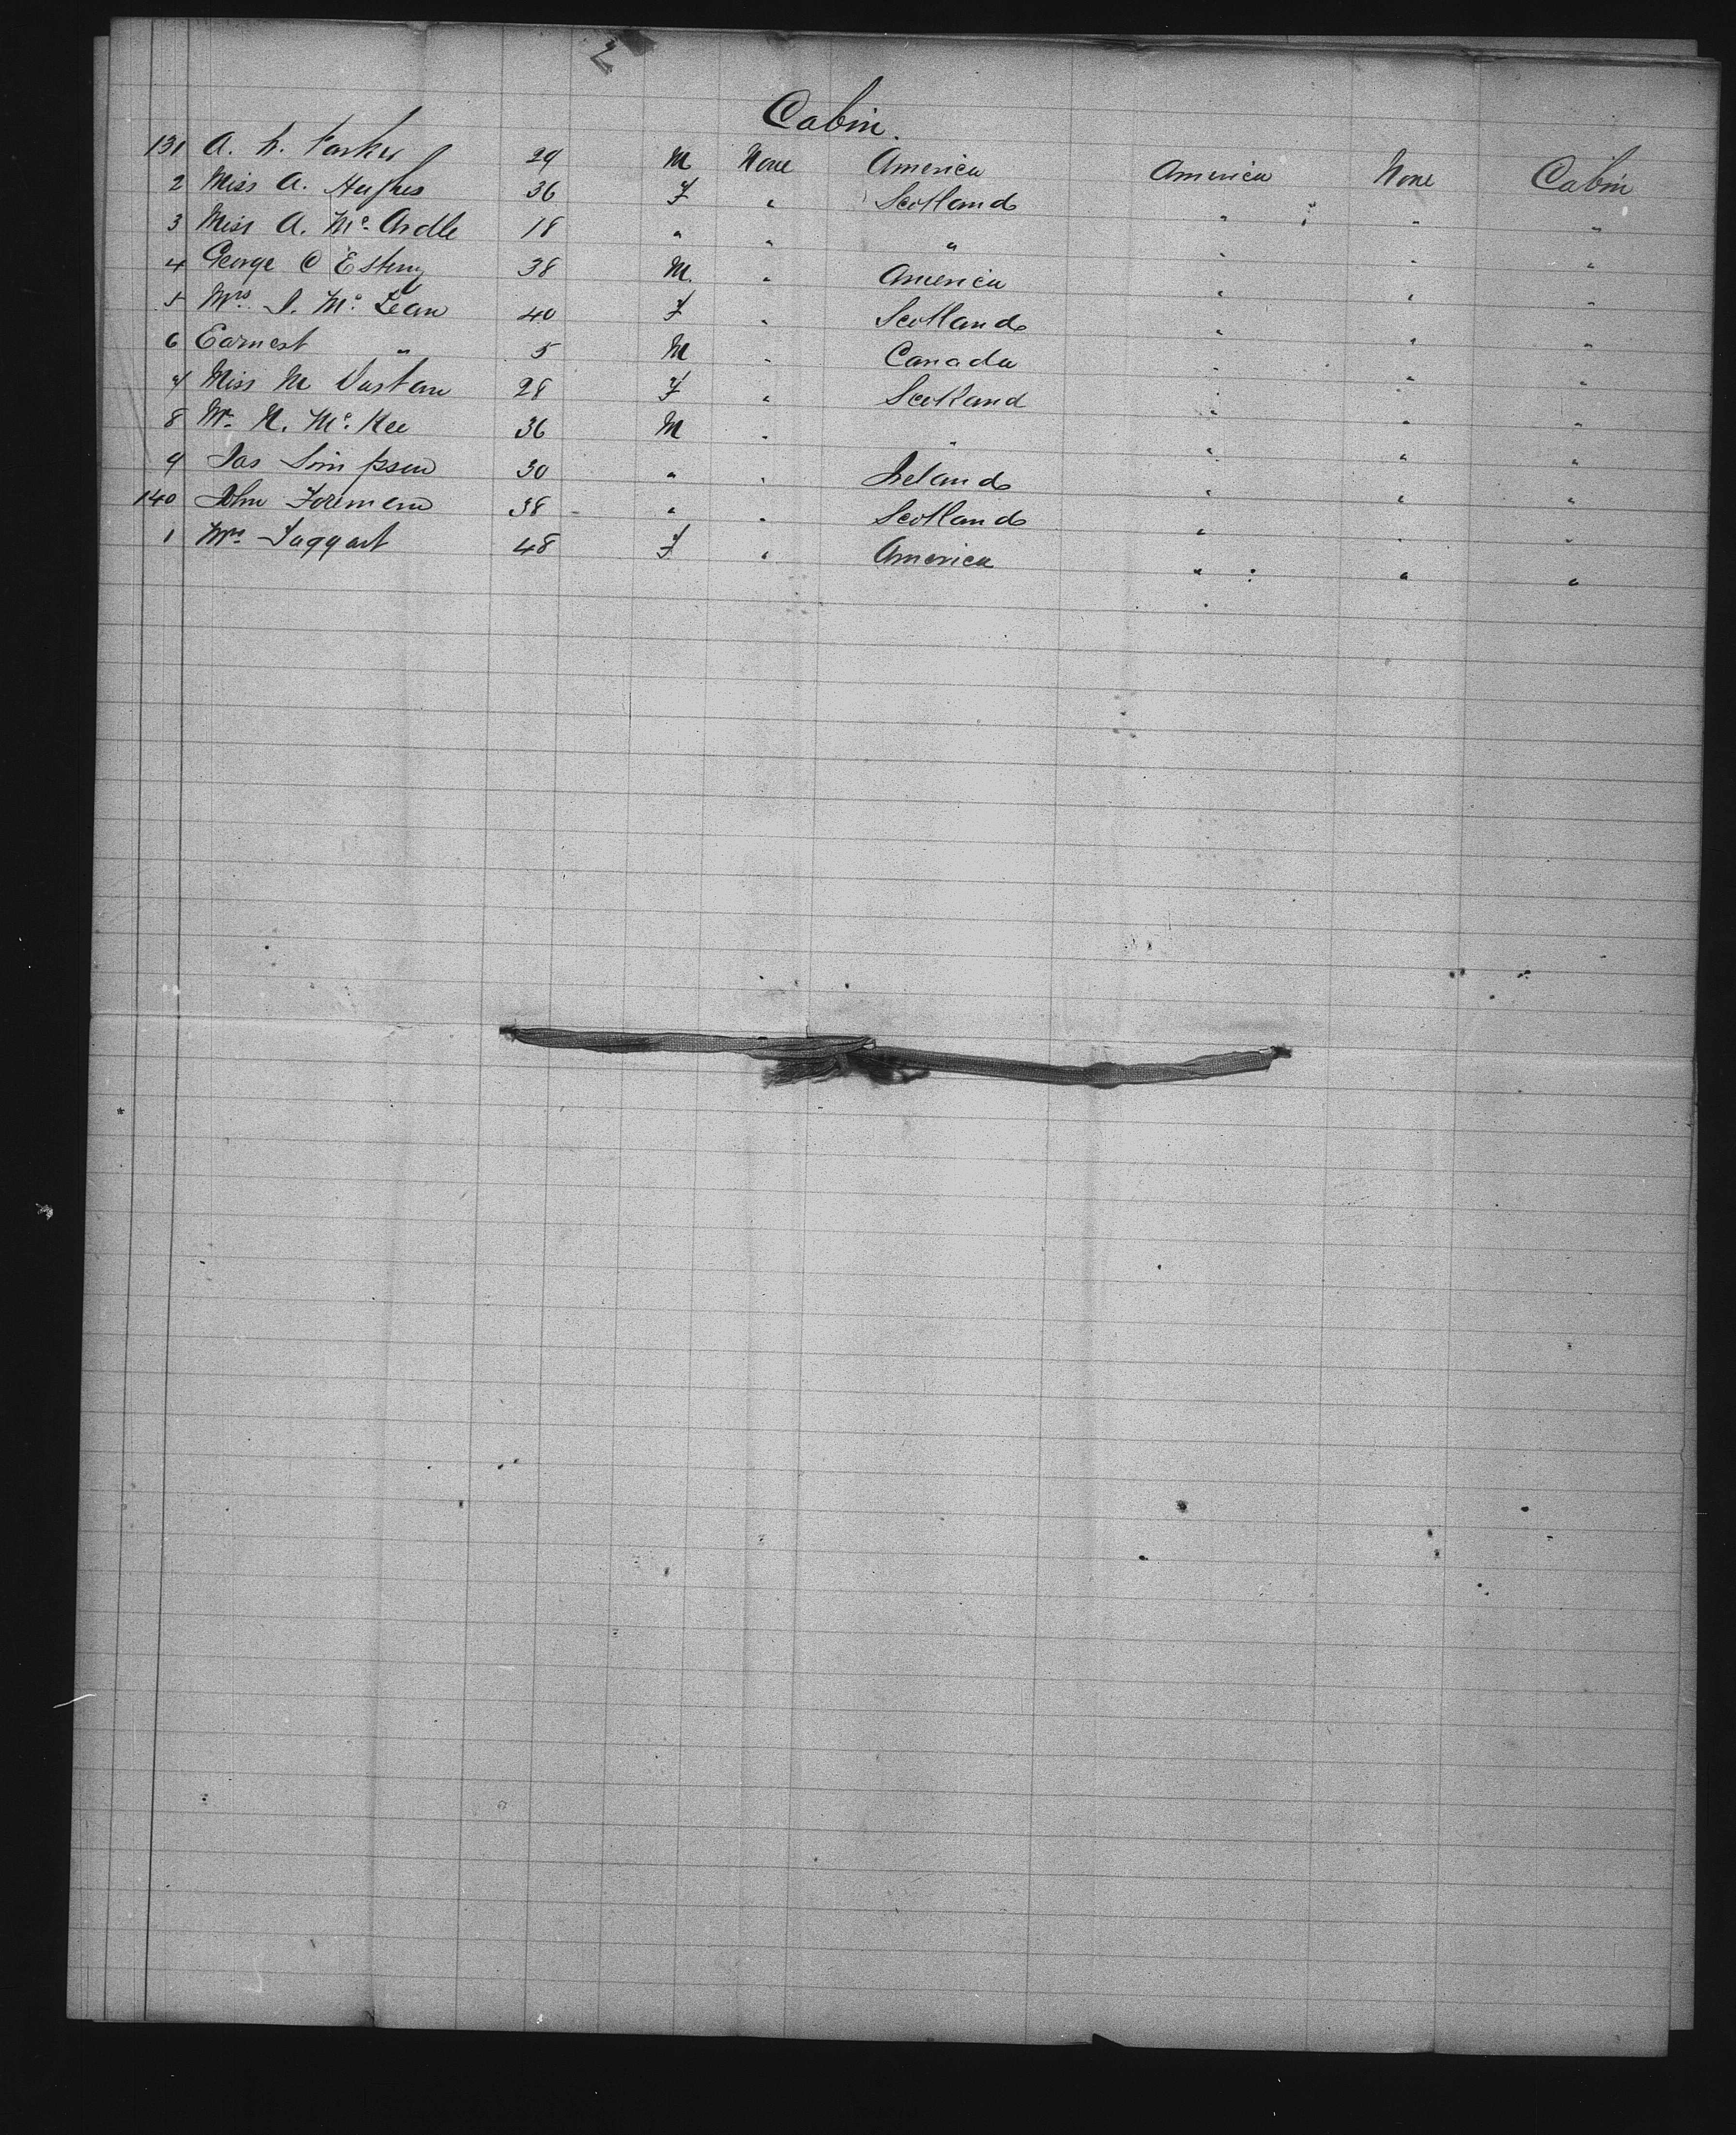 Cabin.
131 A. h. Parker 29 M None America America None Cabin
2 Miss A. Hughes 36 F " Scotland " " "
3 Miss A. Mc Ardle 18 " " " " " "
4 George C Esterly 38 M. " America " " "
5 Mrs. I. Mc Lean 40 F " Scotland " " "
6 Earnest " 5 M " Canada " " "
7 Miss M 28 F " Scotland " " "
8 Mr. N. Mc Kee 36 M " " " " "
9 Jas Simpson 30 " " Ireland " " "
140 John Foremen 38 " " Scotland " " "
1 Mrs. Taggart 48 F " America " " "